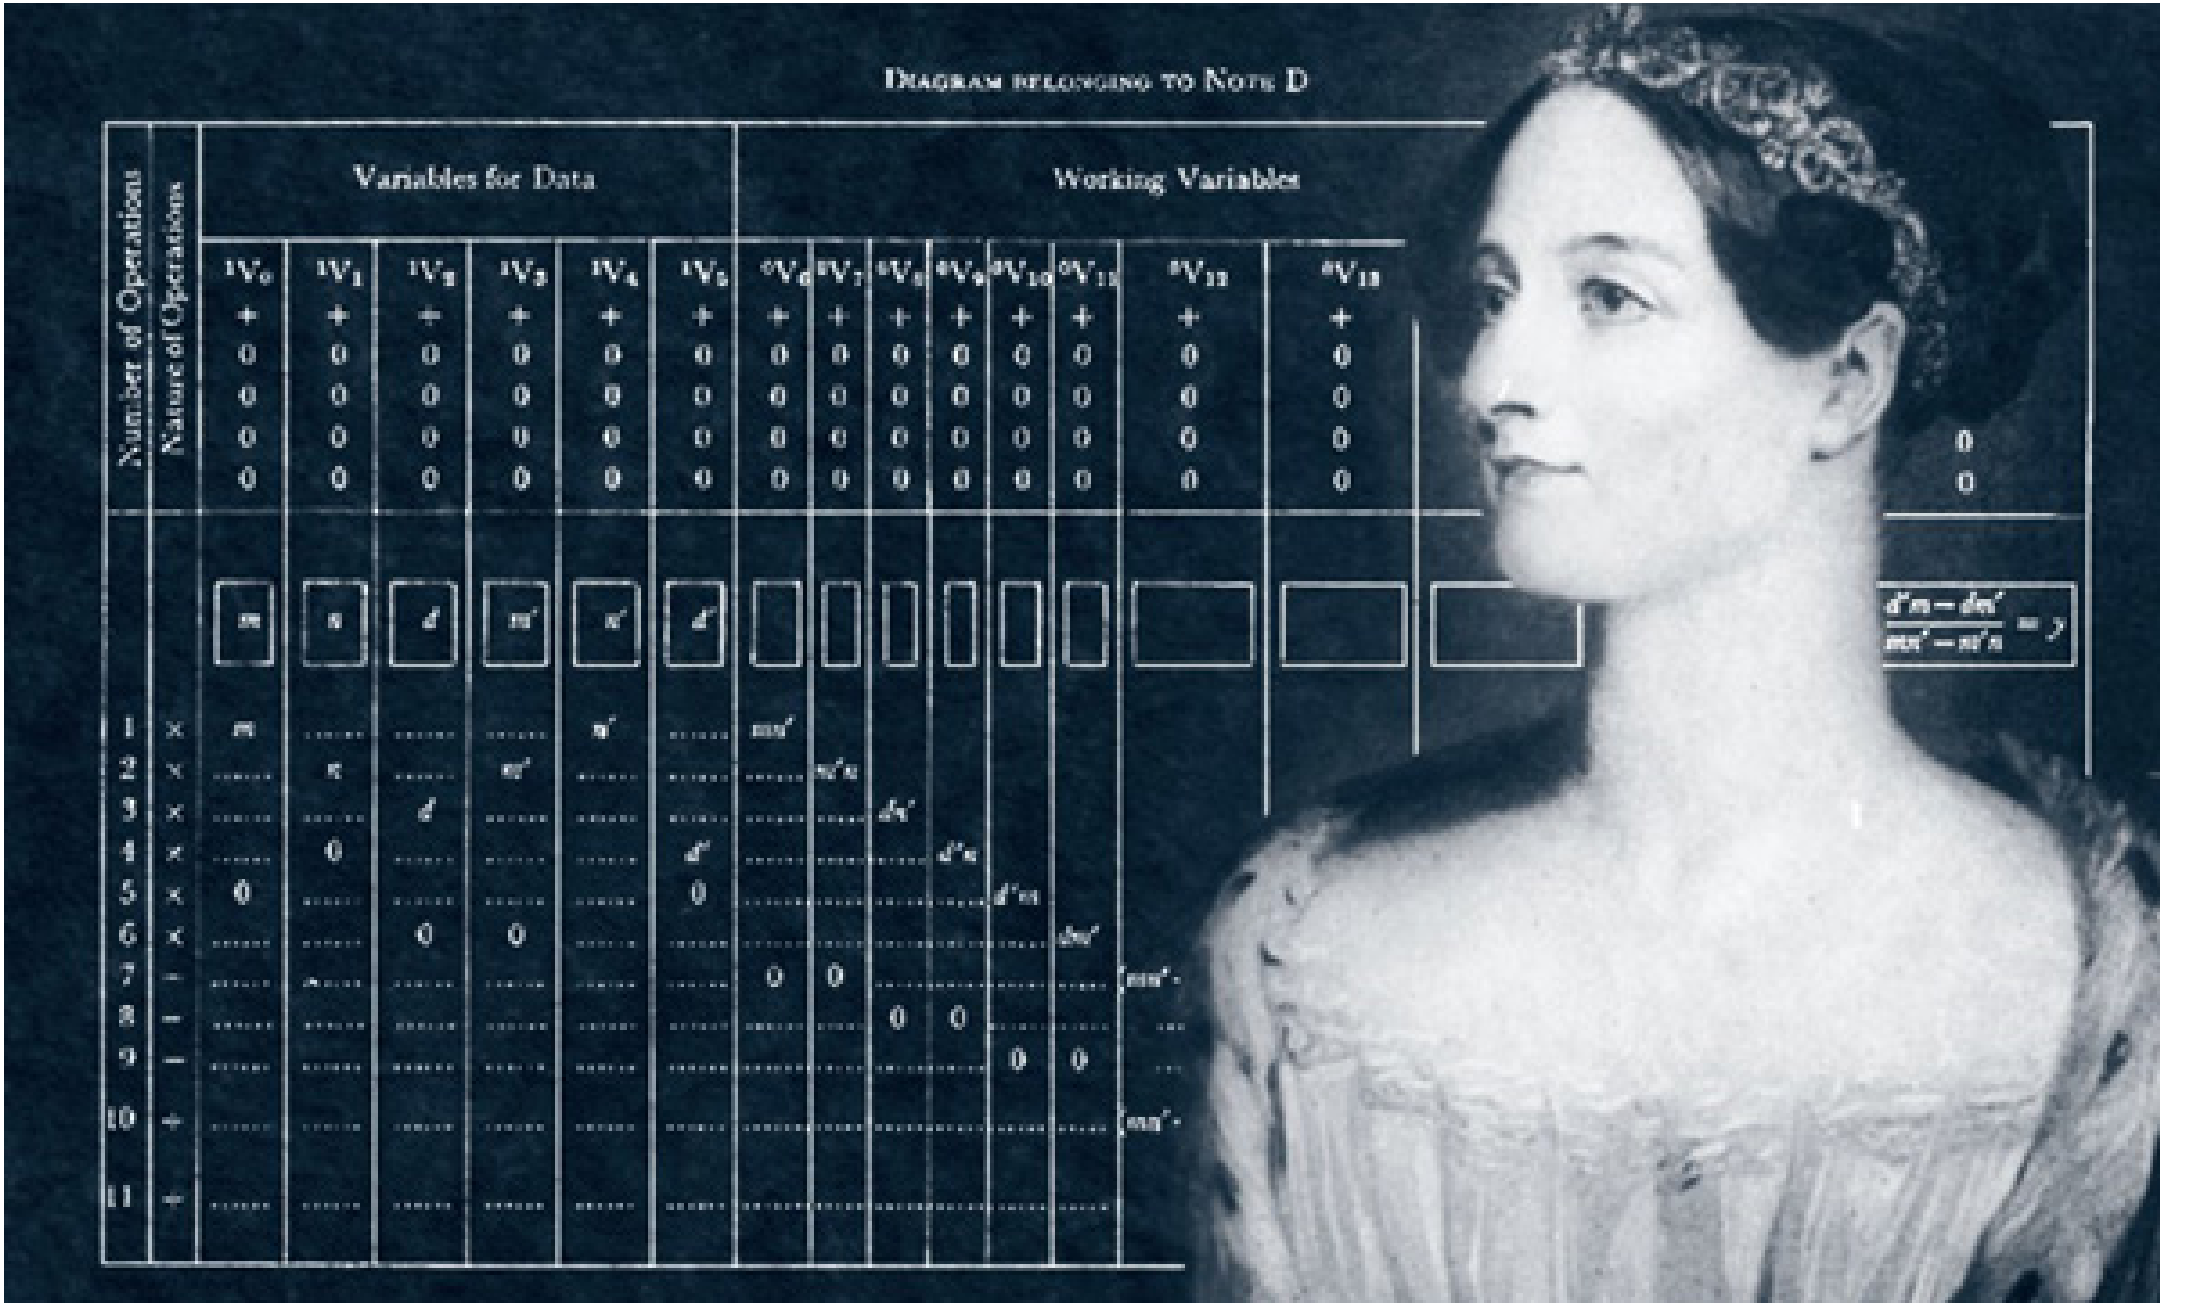 DIAGRAM BELONGING TO NOTE D
Number of Operations
Nature of Operations
Variables for Data
Working Variables
¹V₀ ¹V₁ ¹V₂ ¹V₃ ¹V₄ ¹V₅ ⁰V₆ ⁰V₇ ⁰V₈ ⁰V₉ ⁰V₁₀ ⁰V₁₁ ⁰V₁₂ ⁰V₁₃
+ + + + + + + + + + + + + +
0 0 0 0 0 0 0 0 0 0 0 0 0 0
0 0 0 0 0 0 0 0 0 0 0 0 0 0
0 0 0 0 0 0 0 0 0 0 0 0 0 0 0
0 0 0 0 0 0 0 0 0 0 0 0 0 0 0
m n d m′ n′ d′ d′m−dm′
mn′−m′n = y
1 × m ...... ...... ...... n′ ...... mn′
2 × ...... n ...... m′ ...... ...... ...... m′n
3 × ...... ...... d ...... ...... ...... ...... ...... dn′
4 × ...... 0 ...... ...... ...... d′ ...... ...... ...... d′n
5 × 0 ...... ...... ...... ...... 0 ...... ...... ...... ...... d′m
6 × ...... ...... 0 0 ...... ...... ...... ...... ...... ...... ...... dm′
7 − ...... ...... ...... ...... ...... ...... 0 0 ...... ...... ...... ...... (mn′-
8 − ...... ...... ...... ...... ...... ...... ...... ...... 0 0 ...... ...... ...
9 − ...... ...... ...... ...... ...... ...... ...... ...... ...... ...... 0 0 ...
10 ÷ ...... ...... ...... ...... ...... ...... ...... ...... ...... ...... ...... ...... (mn′-
11 ÷ ...... ...... ...... ...... ...... ...... ...... ...... ...... ...... ...... ......